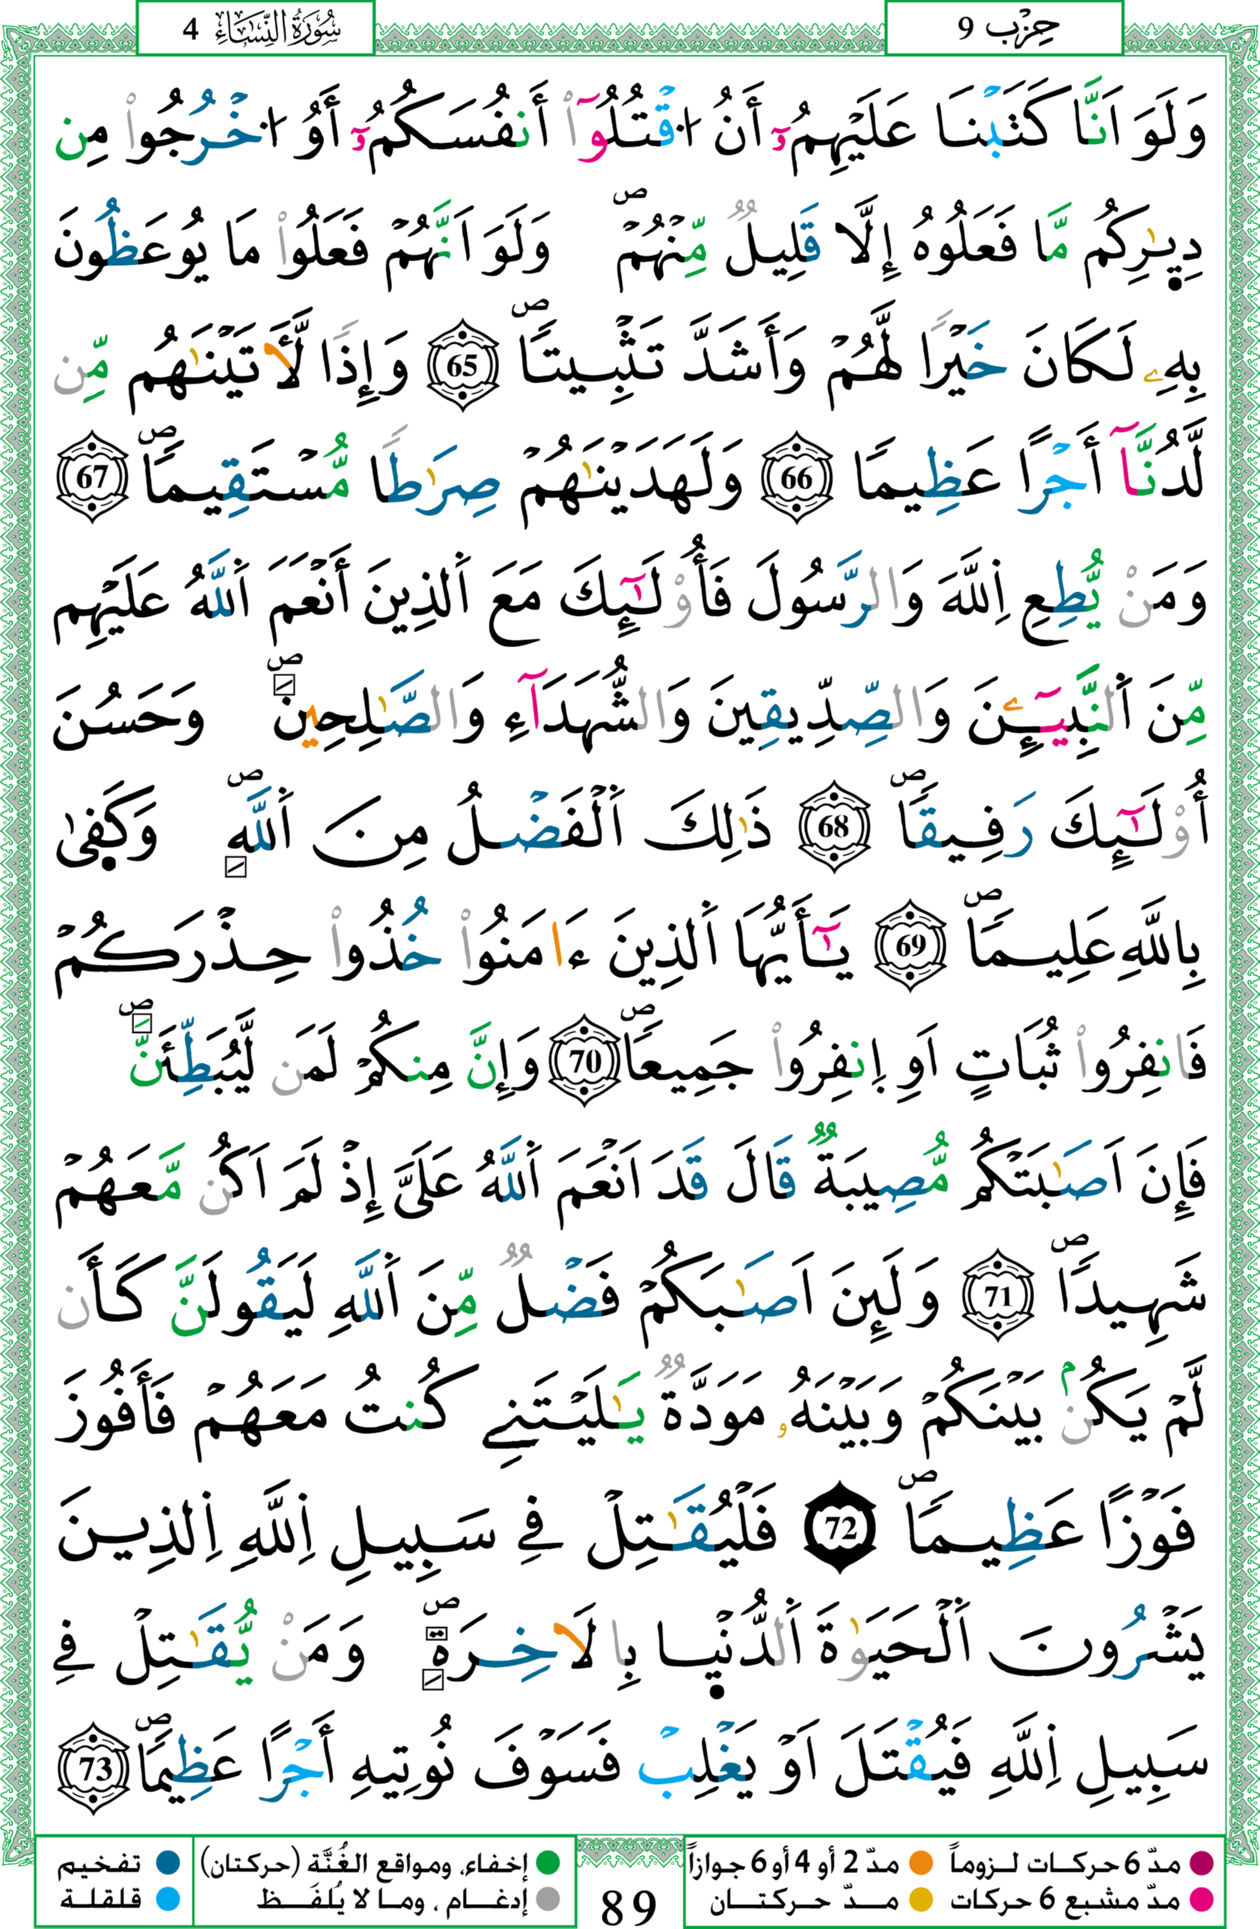 حِزْب 9
سُورَةُ النِّسَاءِ 4
وَلَوَ اَنَّا كَتَبْنَا عَلَيْهِمُۥٓ أَنُ اُ۟قْتُلُوٓاْ أَنفُسَكُمُۥٓ أَوُ اُ۟خْرُجُواْ مِن
دِيٰ۪رِكُم مَّا فَعَلُوهُ إِلَّا قَلِيلٞ مِّنْهُمْۖ وَلَوَ اَنَّهُمْ فَعَلُواْ مَا يُوعَظُونَ
بِهِۦ لَكَانَ خَيْراٗ لَّهُمْ وَأَشَدَّ تَثْبِيتاٗۖ 65 وَإِذاٗ لَّأَتَيْنَٰهُم مِّن
لَّدُنَّآ أَجْراً عَظِيماٗ 66 وَلَهَدَيْنَٰهُمْ صِرَٰطاٗ مُّسْتَقِيماٗۖ 67
وَمَنْ يُّطِعِ اِ۬للَّهَ وَالرَّسُولَ فَأُوْلَٰٓئِكَ مَعَ اَ۬لذِينَ أَنْعَمَ اَ۬للَّهُ عَلَيْهِم
مِّنَ اَ۬لنَّبِيٓـِٕۧنَ وَالصِّدِّيقِينَ وَالشُّهَدَآءِ وَالصَّٰلِحِينَۖ وَحَسُنَ
أُوْلَٰٓئِكَ رَفِيقاٗۖ 68 ذَٰلِكَ اَ۬لْفَضْلُ مِنَ اَ۬للَّهِۖ وَكَف۪يٰ
بِاللَّهِ عَلِيماٗۖ 69 يَٰٓأَيُّهَا اَ۬لذِينَ ءَامَنُواْ خُذُواْ حِذْرَكُمْ
فَانفِرُواْ ثُبَاتٍ اَوِ اِ۪نفِرُواْ جَمِيعاٗۖ 70 وَإِنَّ مِنكُمْ لَمَن لَّيُبَطِّئَنَّۖ
فَإِنَ اَصَٰبَتْكُم مُّصِيبَةٞ قَالَ قَدَ اَنْعَمَ اَ۬للَّهُ عَلَيَّ إِذْ لَمَ اَكُن مَّعَهُمْ
شَهِيداٗۖ 71 وَلَئِنَ اَصَٰبَكُمْ فَضْلٞ مِّنَ اَ۬للَّهِ لَيَقُولَنَّ كَأَن
لَّمْ يَكُنۢ بَيْنَكُمْ وَبَيْنَهُۥ مَوَدَّةٞ يَٰلَيْتَنِے كُنتُ مَعَهُمْ فَأَفُوزَ
فَوْزاً عَظِيماٗۖ 72 فَلْيُقَٰتِلْ فِے سَبِيلِ اِ۬للَّهِ اِ۬لذِينَ
يَشْرُونَ اَ۬لْحَيَوٰةَ اَ۬لدُّنْي۪ا بِالَاخِرَةِۖ وَمَنْ يُّقَٰتِلْ فِے
سَبِيلِ اِ۬للَّهِ فَيُقْتَلَ اَوْ يَغْلِبْ فَسَوْفَ نُوتِيهِ أَجْراً عَظِيماٗۖ 73
مدّ 6 حركات لـزوماً
مدّ 2 أو 4 أو 6 جوازاً
إخفاء، ومواقع الغُنَّة (حركتان)
تفخيم
مدّ مشبع 6 حركات
مـدّ حـركتـان
إدغـام ، ومـا لا يُلفَـظ
قلقلة
89